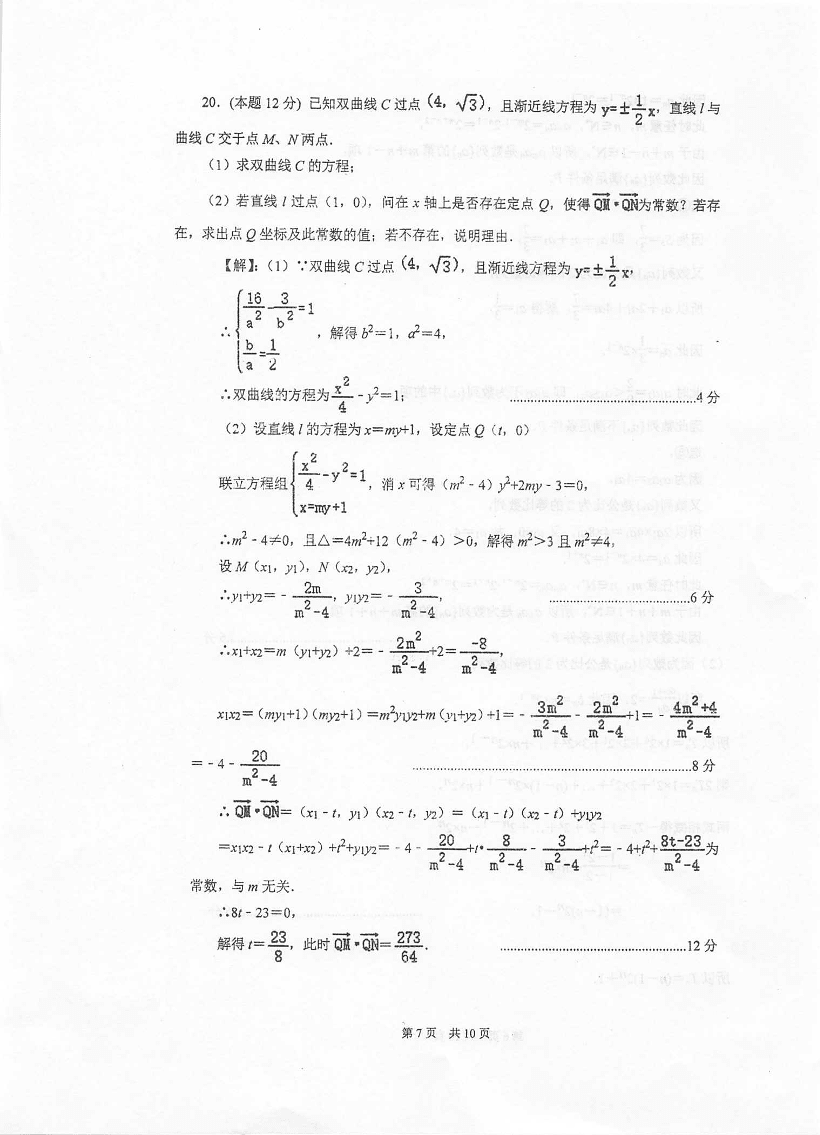 20. (本题 12 分) 已知双曲线 C 过点 (4, √3), 且渐近线方程为 y=±1/2x, 直线 l 与
曲线 C 交于点 M、N 两点.
(1) 求双曲线 C 的方程;
(2) 若直线 l 过点 (1, 0), 问在 x 轴上是否存在定点 Q, 使得 QM•QN 为常数? 若存
在, 求出点 Q 坐标及此常数的值; 若不存在, 说明理由.
【解】: (1) ∵双曲线 C 过点 (4, √3), 且渐近线方程为 y=±1/2x,
∴ { 16/a²-3/b²=1, b/a=1/2 , 解得 b²=1, a²=4,
∴双曲线的方程为 x²/4 - y²=1; ......4 分
(2) 设直线 l 的方程为 x=my+1, 设定点 Q (t, 0)
联立方程组 { x²/4-y²=1, x=my+1 , 消 x 可得 (m² - 4) y²+2my - 3=0,
∴m² - 4≠0, 且△=4m²+12 (m² - 4) >0, 解得 m²>3 且 m²≠4,
设 M (x1, y1), N (x2, y2),
∴y1+y2= - 2m/(m²-4), y1y2= - 3/(m²-4), ......6 分
∴x1+x2=m (y1+y2) +2= - 2m²/(m²-4)+2= -8/(m²-4),
x1x2= (my1+1) (my2+1) =m²y1y2+m (y1+y2) +1= - 3m²/(m²-4) - 2m²/(m²-4)+1= - (4m²+4)/(m²-4)
= - 4 - 20/(m²-4) ......8 分
∴ QM•QN= (x1 - t, y1) (x2 - t, y2) = (x1 - t) (x2 - t) +y1y2
=x1x2 - t (x1+x2) +t²+y1y2= - 4 - 20/(m²-4)+t•8/(m²-4) - 3/(m²-4)+t²= - 4+t²+(8t-23)/(m²-4)为
常数, 与 m 无关.
∴8t - 23=0,
解得 t=23/8, 此时 QM•QN=273/64. ......12 分
第 7 页 共 10 页